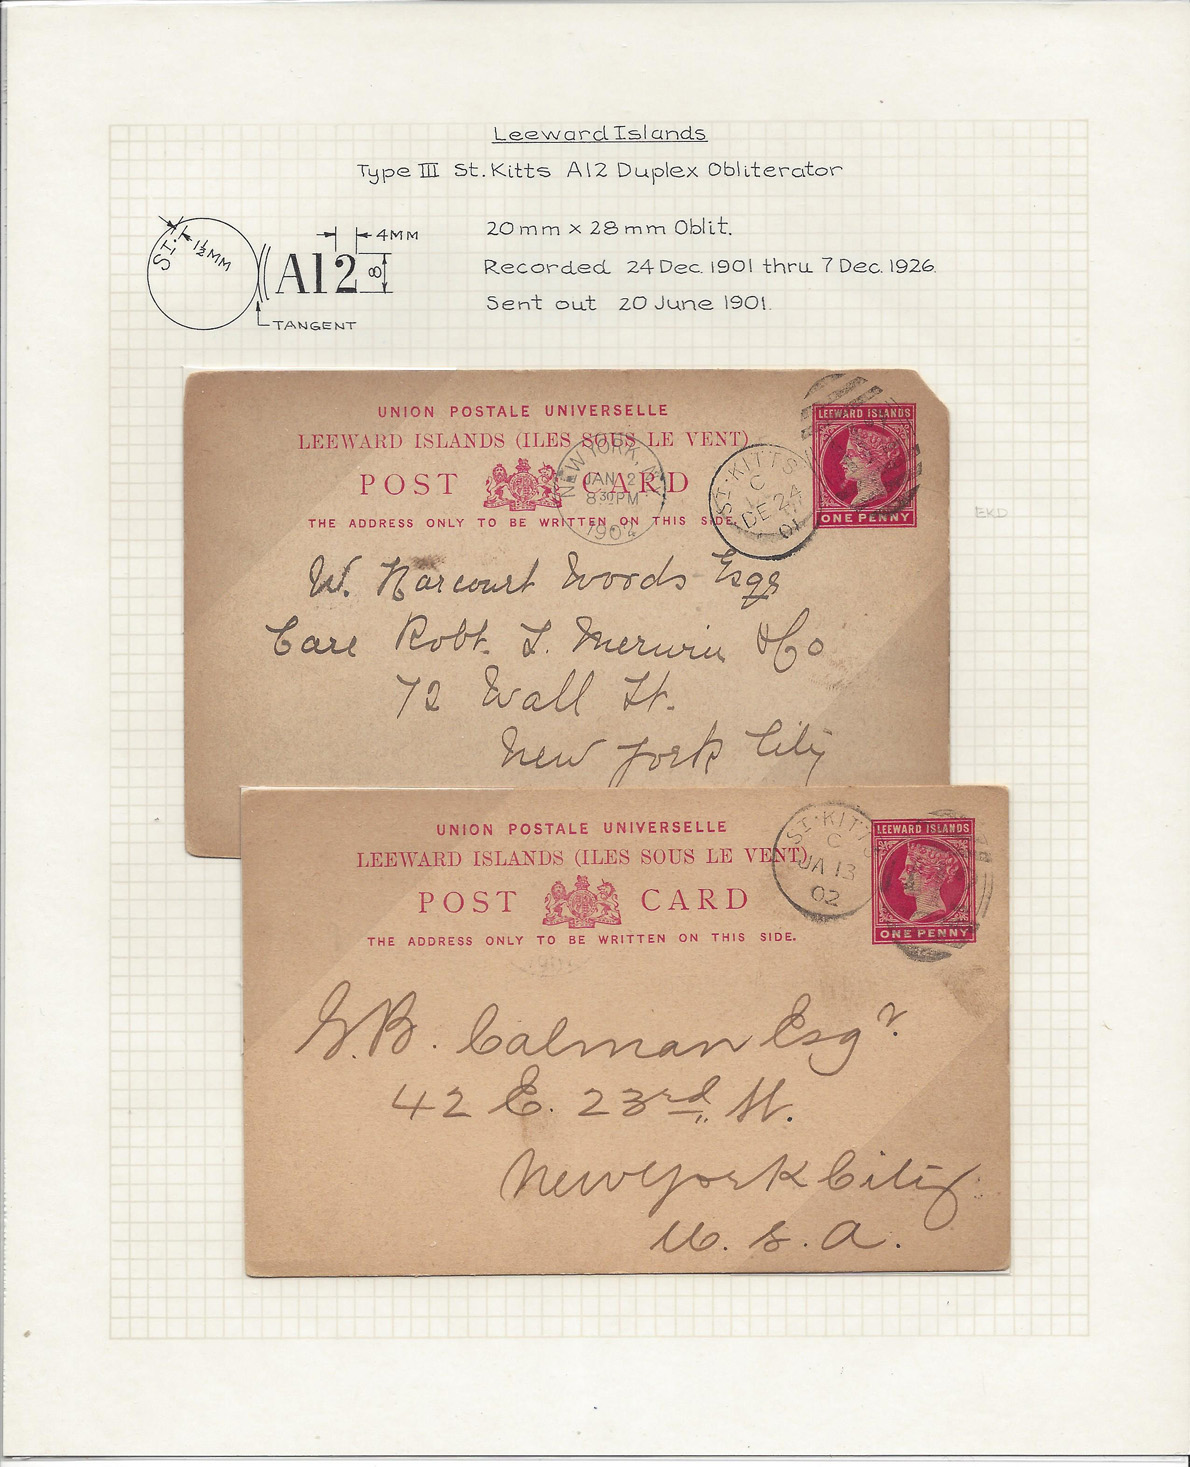 Leeward Islands
Type III St. Kitts A12 Duplex Obliterator
ST.
1½ MM
A12
4MM
8
TANGENT
20mm x 28mm Oblit.
Recorded 24 Dec. 1901 thru 7 Dec. 1926.
Sent out 20 June 1901.
UNION POSTALE UNIVERSELLE
LEEWARD ISLANDS (ILES SOUS LE VENT)
POST CARD
THE ADDRESS ONLY TO BE WRITTEN ON THIS SIDE.
NEW YORK, N.Y.
JAN 2
8 30 PM
190
ST. KITTS
C
DE 24
01
LEEWARD ISLANDS
ONE PENNY
EKD
W. Harcourt Woods Esqr
Care Robt. L. Merwin & Co
72 Wall St.
New York City
UNION POSTALE UNIVERSELLE
LEEWARD ISLANDS (ILES SOUS LE VENT)
POST CARD
THE ADDRESS ONLY TO BE WRITTEN ON THIS SIDE.
ST. KITTS
C
JA 13
02
LEEWARD ISLANDS
ONE PENNY
G. B. Calman Esqr.
42 E. 23rd St.
New York City
U. S. A.